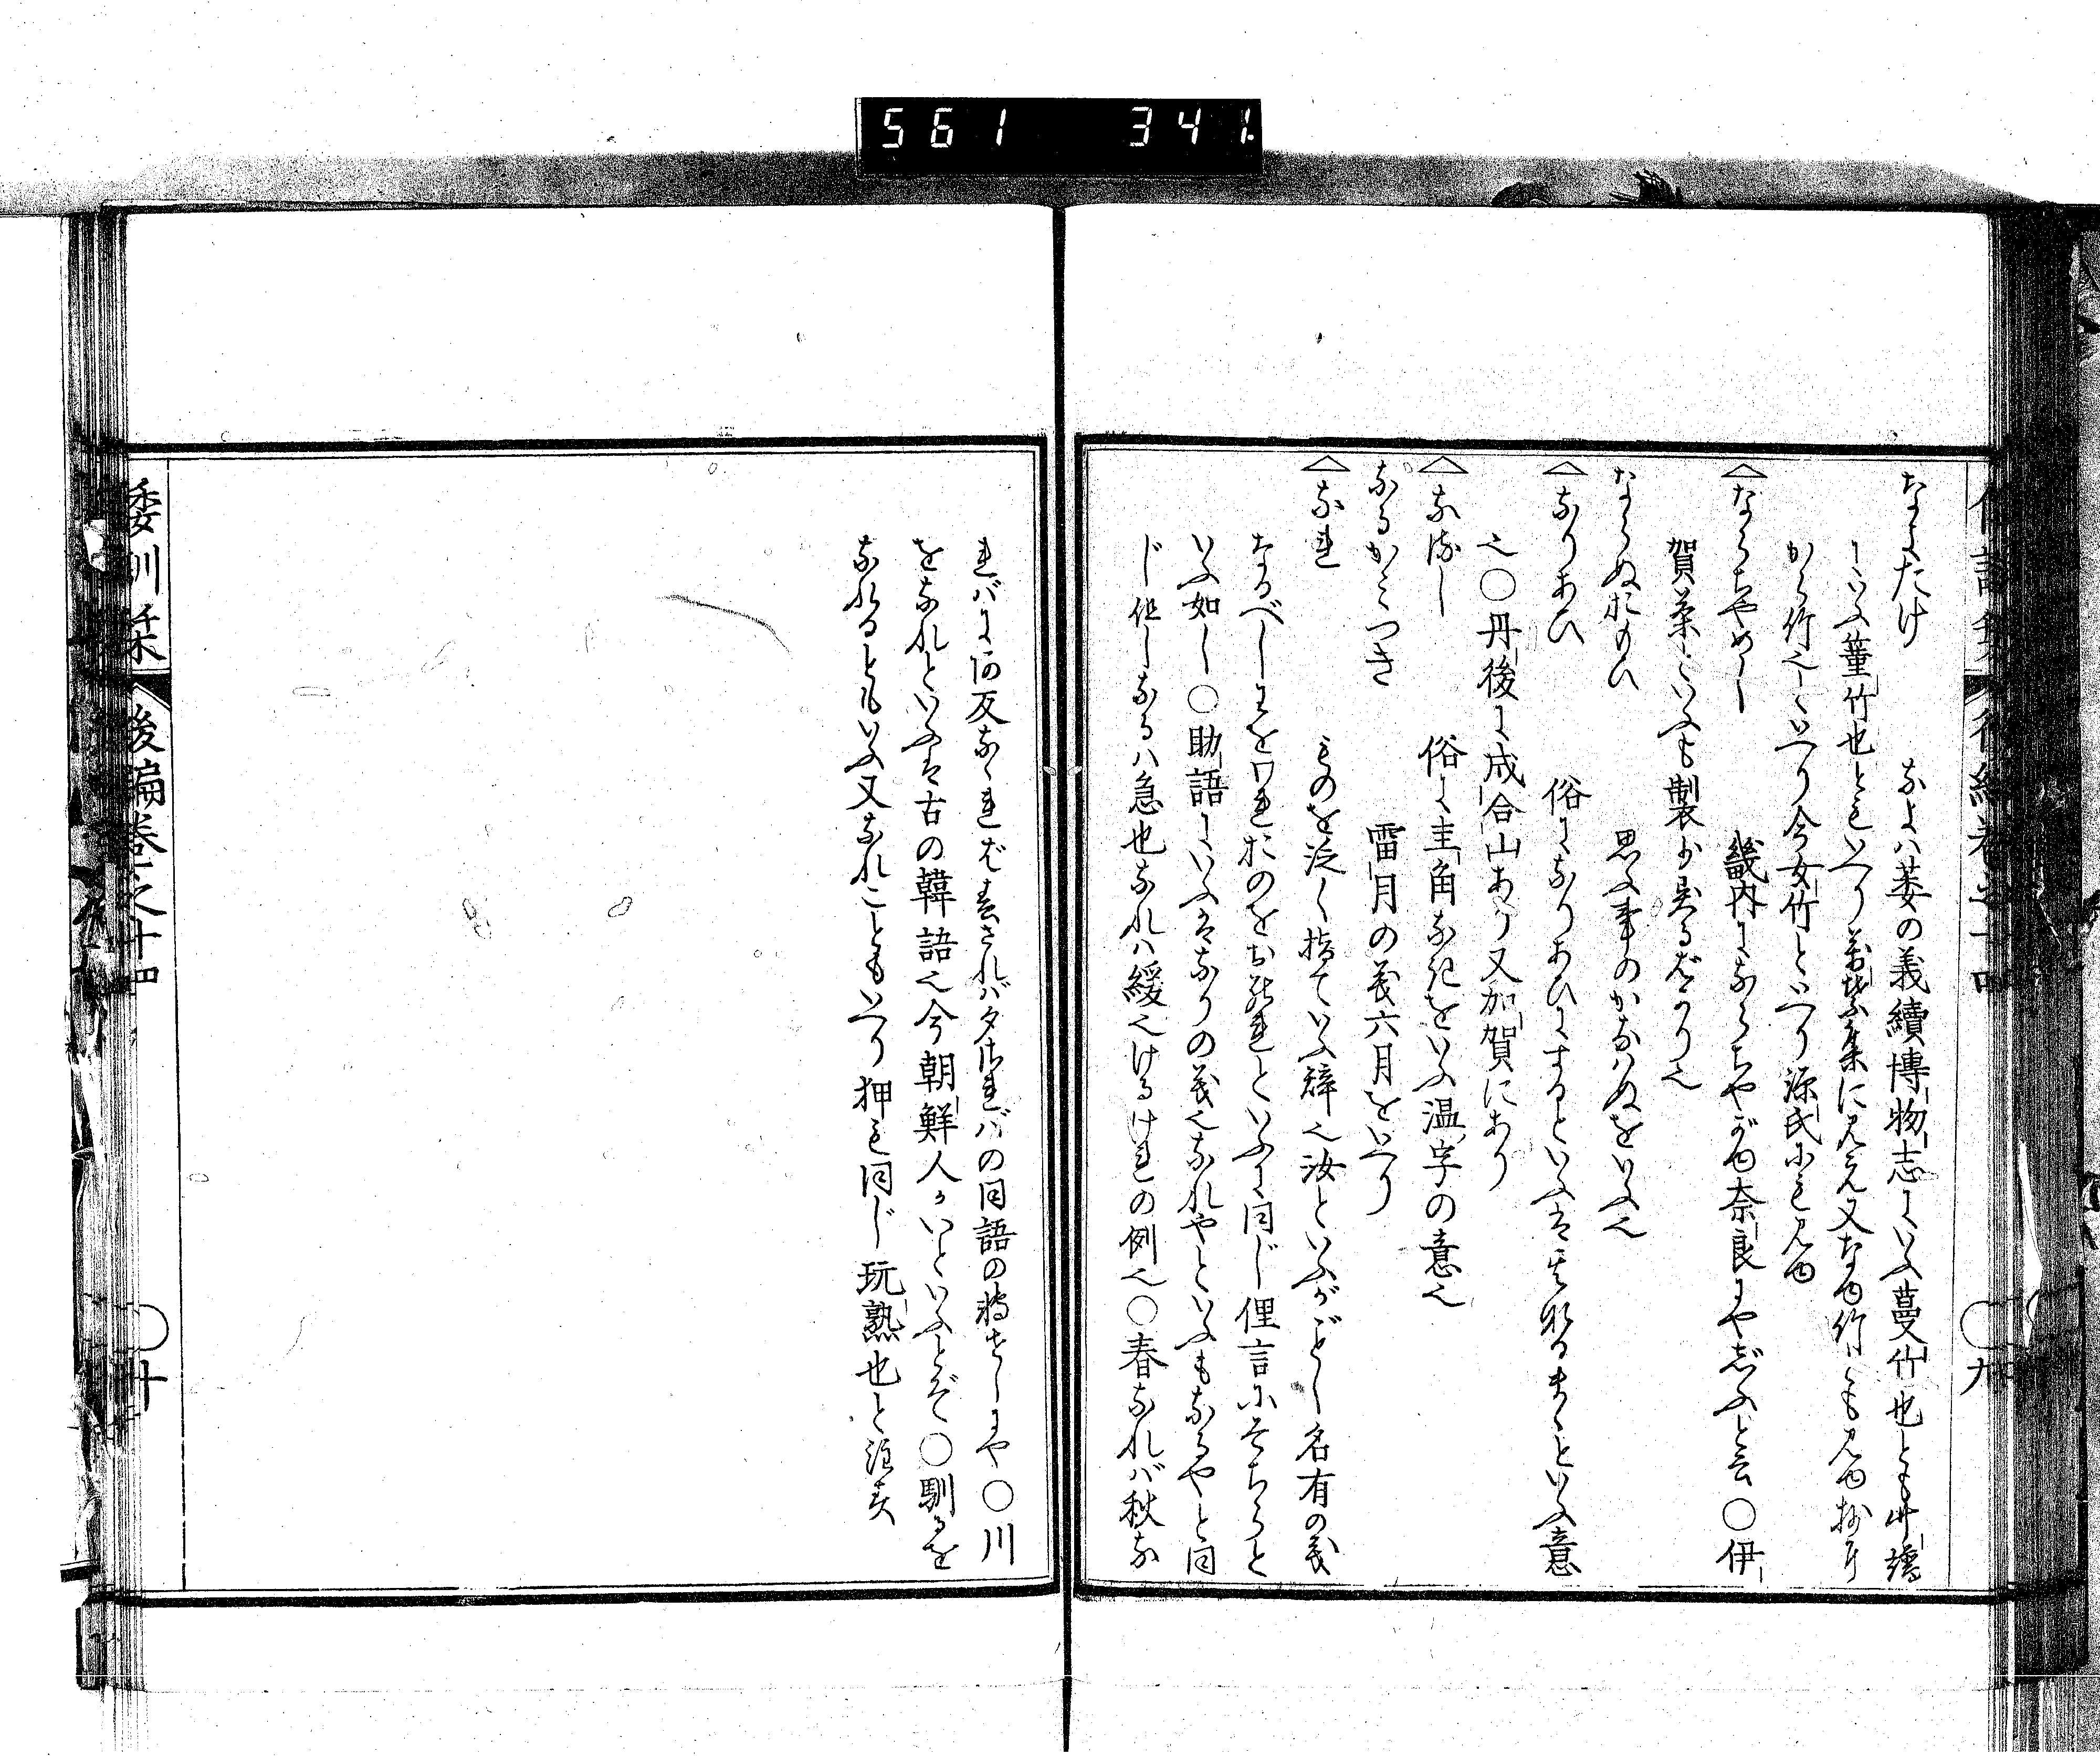 561 341
なよたけ なよハ萎の義續博物志にいふ蔓竹也とも
にいふ菫竹也ともいへり萬葉集に見え又なゆ竹とも見ゆ
から竹也といへり今女竹といへり源氏にも見ゆ
△ならちやめし 畿内にならちやがゆ奈良にやじふと云〇伊
賀茶といふも製少し異るばかり也
ならぬおもひ 思ふ事のかなハぬをいふ也
△なりあひ 俗になりあひにするといふは其形るまゝといふ意
也〇丹後に成合山あり又加賀にあり
△なるし 俗に圭角なきをいふ温字の意也
なるかみつき 雷月の義六月をいへり
△なれ ものを泛く指ていふ辞也汝といふがごとし名有の義
なるべしわをわれおのをおのれといふに同じ俚言にそちらと
いふ如し〇助語にいふはなりの義也なれやといふもなるやと同
じ但しなるハ急也なれハ緩也けるけれの例也〇春なれバ秋な
れバに阿反なゝれば春されバ夕されバの同語の轉ぜしにや〇川
をなれといふは古の韓語也今朝鮮人ハいといふとぞ〇馴るを
なれるともいふ又なれこともいへり狎も同じ玩熟也と注す
倭訓栞 後編巻之十四 〇十
後編巻之十四 〇九